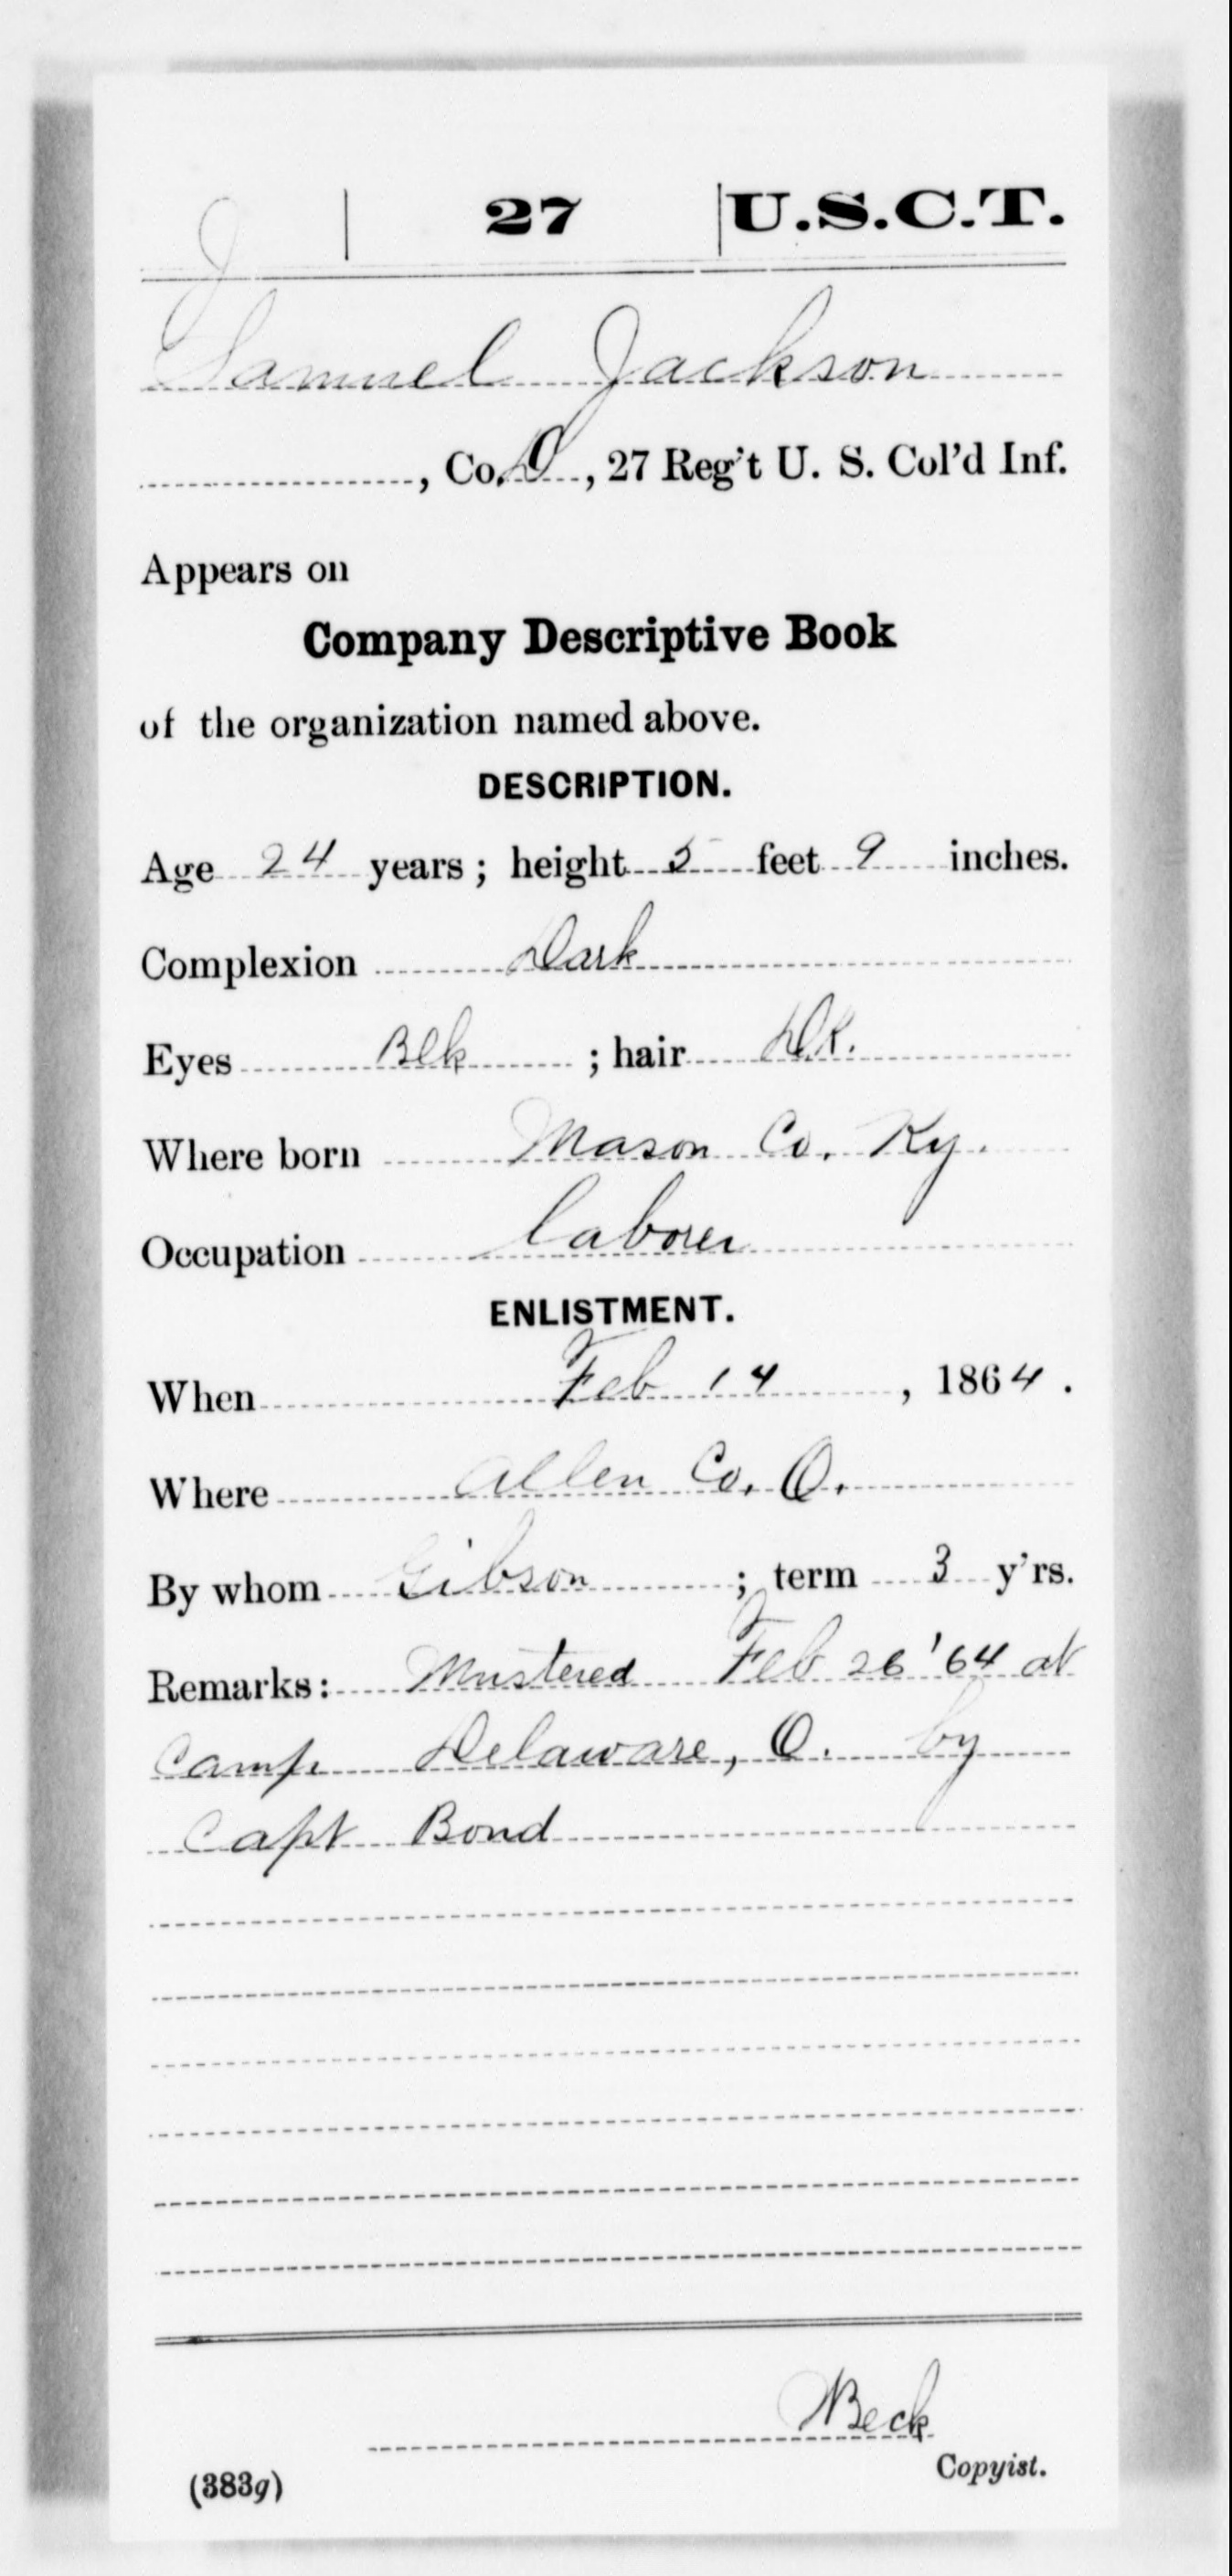 J | 27 | U.S.C.T.
Samuel Jackson
, Co. D, 27 Reg't U. S. Col'd Inf.
Appears on
Company Descriptive Book
of the organization named above.
DESCRIPTION.
Age 24 years; height 5 feet 9 inches.
Complexion Dark
Eyes Blk ; hair Dk.
Where born Mason Co. Ky.
Occupation laborer
ENLISTMENT.
When Feb 14, 1864.
Where Allen Co. O.
By whom Gibson ; term 3 y'rs.
Remarks: Mustered Feb 26 '64 at
Camp Delaware, O. by
Capt Bond
Beck
Copyist.
(383g)